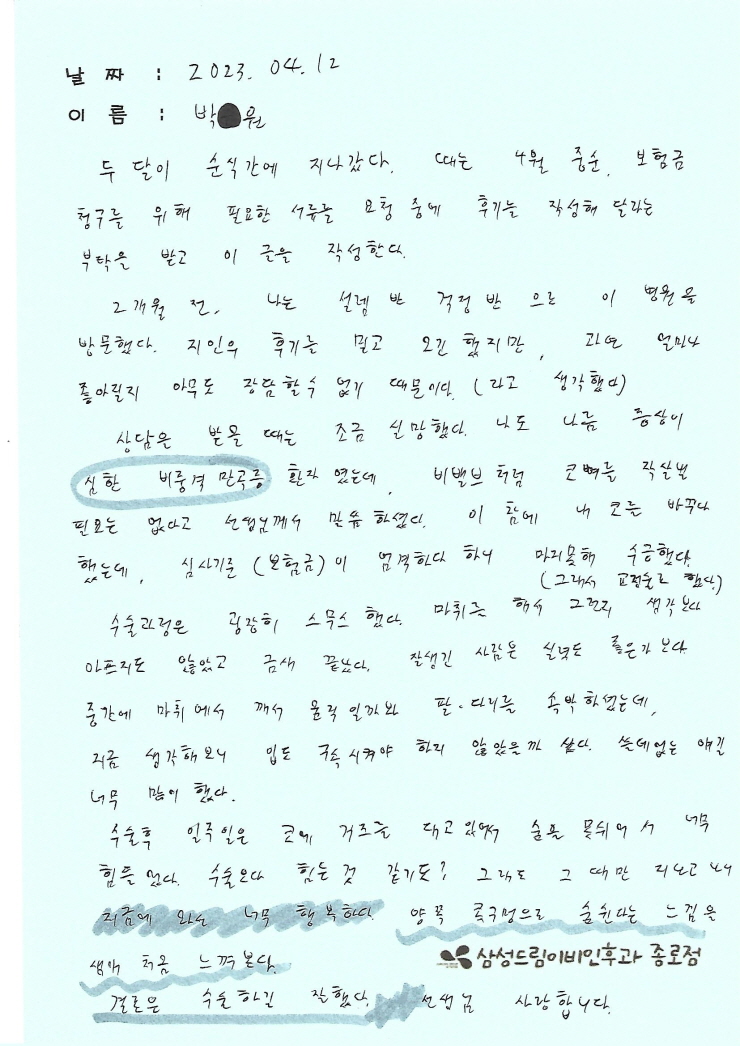 날 짜 : 2023. 04. 12
이 름 : 박 원
두 달이 순식간에 지나갔다. 때는 4월 중순, 보험금
청구를 위해 필요한 서류들 요청 중에 후기를 작성해 달라는
부탁을 받고 이 글을 작성한다.
2개월 전, 나는 설렘 반 걱정 반 으로 이 병원을
방문했다. 지인의 후기를 믿고 오긴 했지만, 과연 얼마나
좋아질지 아무도 장담할수 없기 때문이다. (라고 생각했다)
상담은 받을 때는 조금 실망했다. 나도 나름 증상이
심한 비중격 만곡증 환자 였는데, 비밸브 처럼 코뼈를 작살낼
필요는 없다고 선생님께서 말씀 하셨다. 이 참에 내 코를 바꾸나
했는데, 심사기준 (보험금)이 엄격하다 하니 마지못해 수긍했다.
(그래서 교정술로 했다.)
수술과정은 굉장히 스무스 했다. 마취를 해서 그런지 생각보다
아프지도 않았고 금새 끝났다. 잘생긴 사람은 실력도 좋은가 보다.
중간에 마취에서 깨서 움직일까봐 팔·다리를 속박하셨는데,
지금 생각해보니 입도 구속시켜야 하지 않았을까 싶다. 쓸데없는 얘길
너무 많이 했다.
수술후 일주일은 코에 거즈를 대고있어서 숨을 못쉬어서 너무
힘들었다. 수술보다 힘든 것 같기도? 그래도 그 때만 지나고 나니
지금에 와선 너무 행복하다. 양쪽 콧구멍으로 숨쉰다는 느낌은
생애 처음 느껴본다.
삼성드림이비인후과 종로점
결론은 수술하길 잘했다. 선생님 사랑합니다.